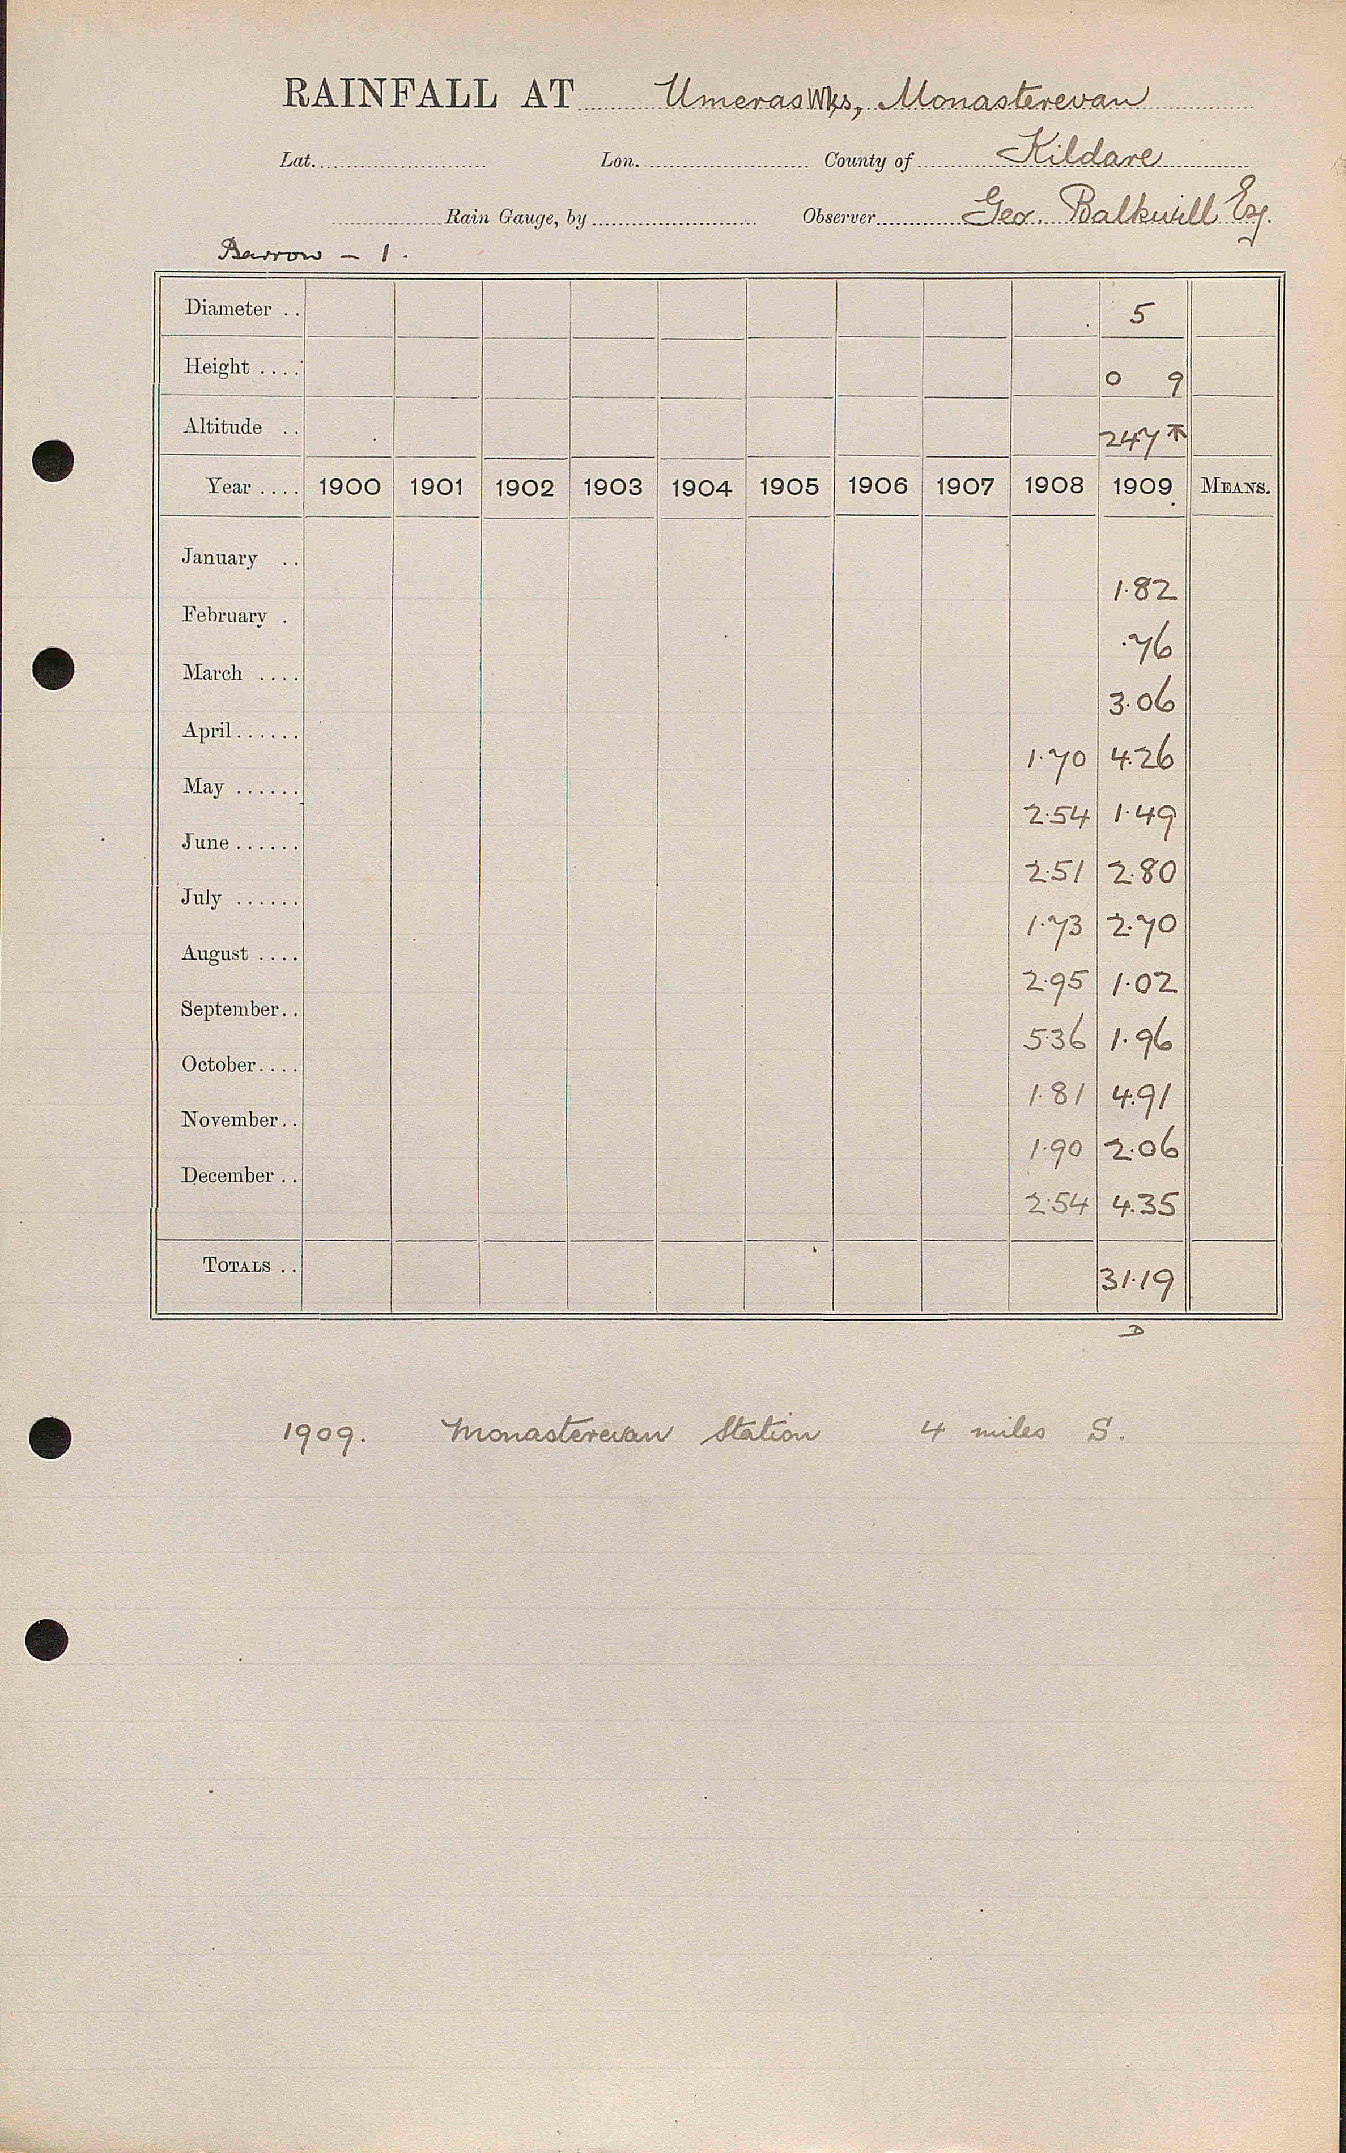 RAINFALL AT Umeras Wks, Monasterevan
Lat. Lon. County of Kildare
Rain Gauge, by Observer Geo. Balkwill Esq.
Barrow - 1.
Diameter .. 5
Height .... 0 9
Altitude .. 247
Year .... 1900 1901 1902 1903 1904 1905 1906 1907 1908 1909 MEANS.
January .. 1.82
February . .76
March .... 3.06
April...... 1.70 4.26
May ...... 2.54 1.49
June ...... 2.51 2.80
July ...... 1.73 2.70
August .... 2.95 1.02
September.. 5.36 1.96
October.... 1.81 4.91
November.. 1.90 2.06
December .. 2.54 4.35
TOTALS .. 31.19
D
1909. Monasterevan Station 4 miles S.